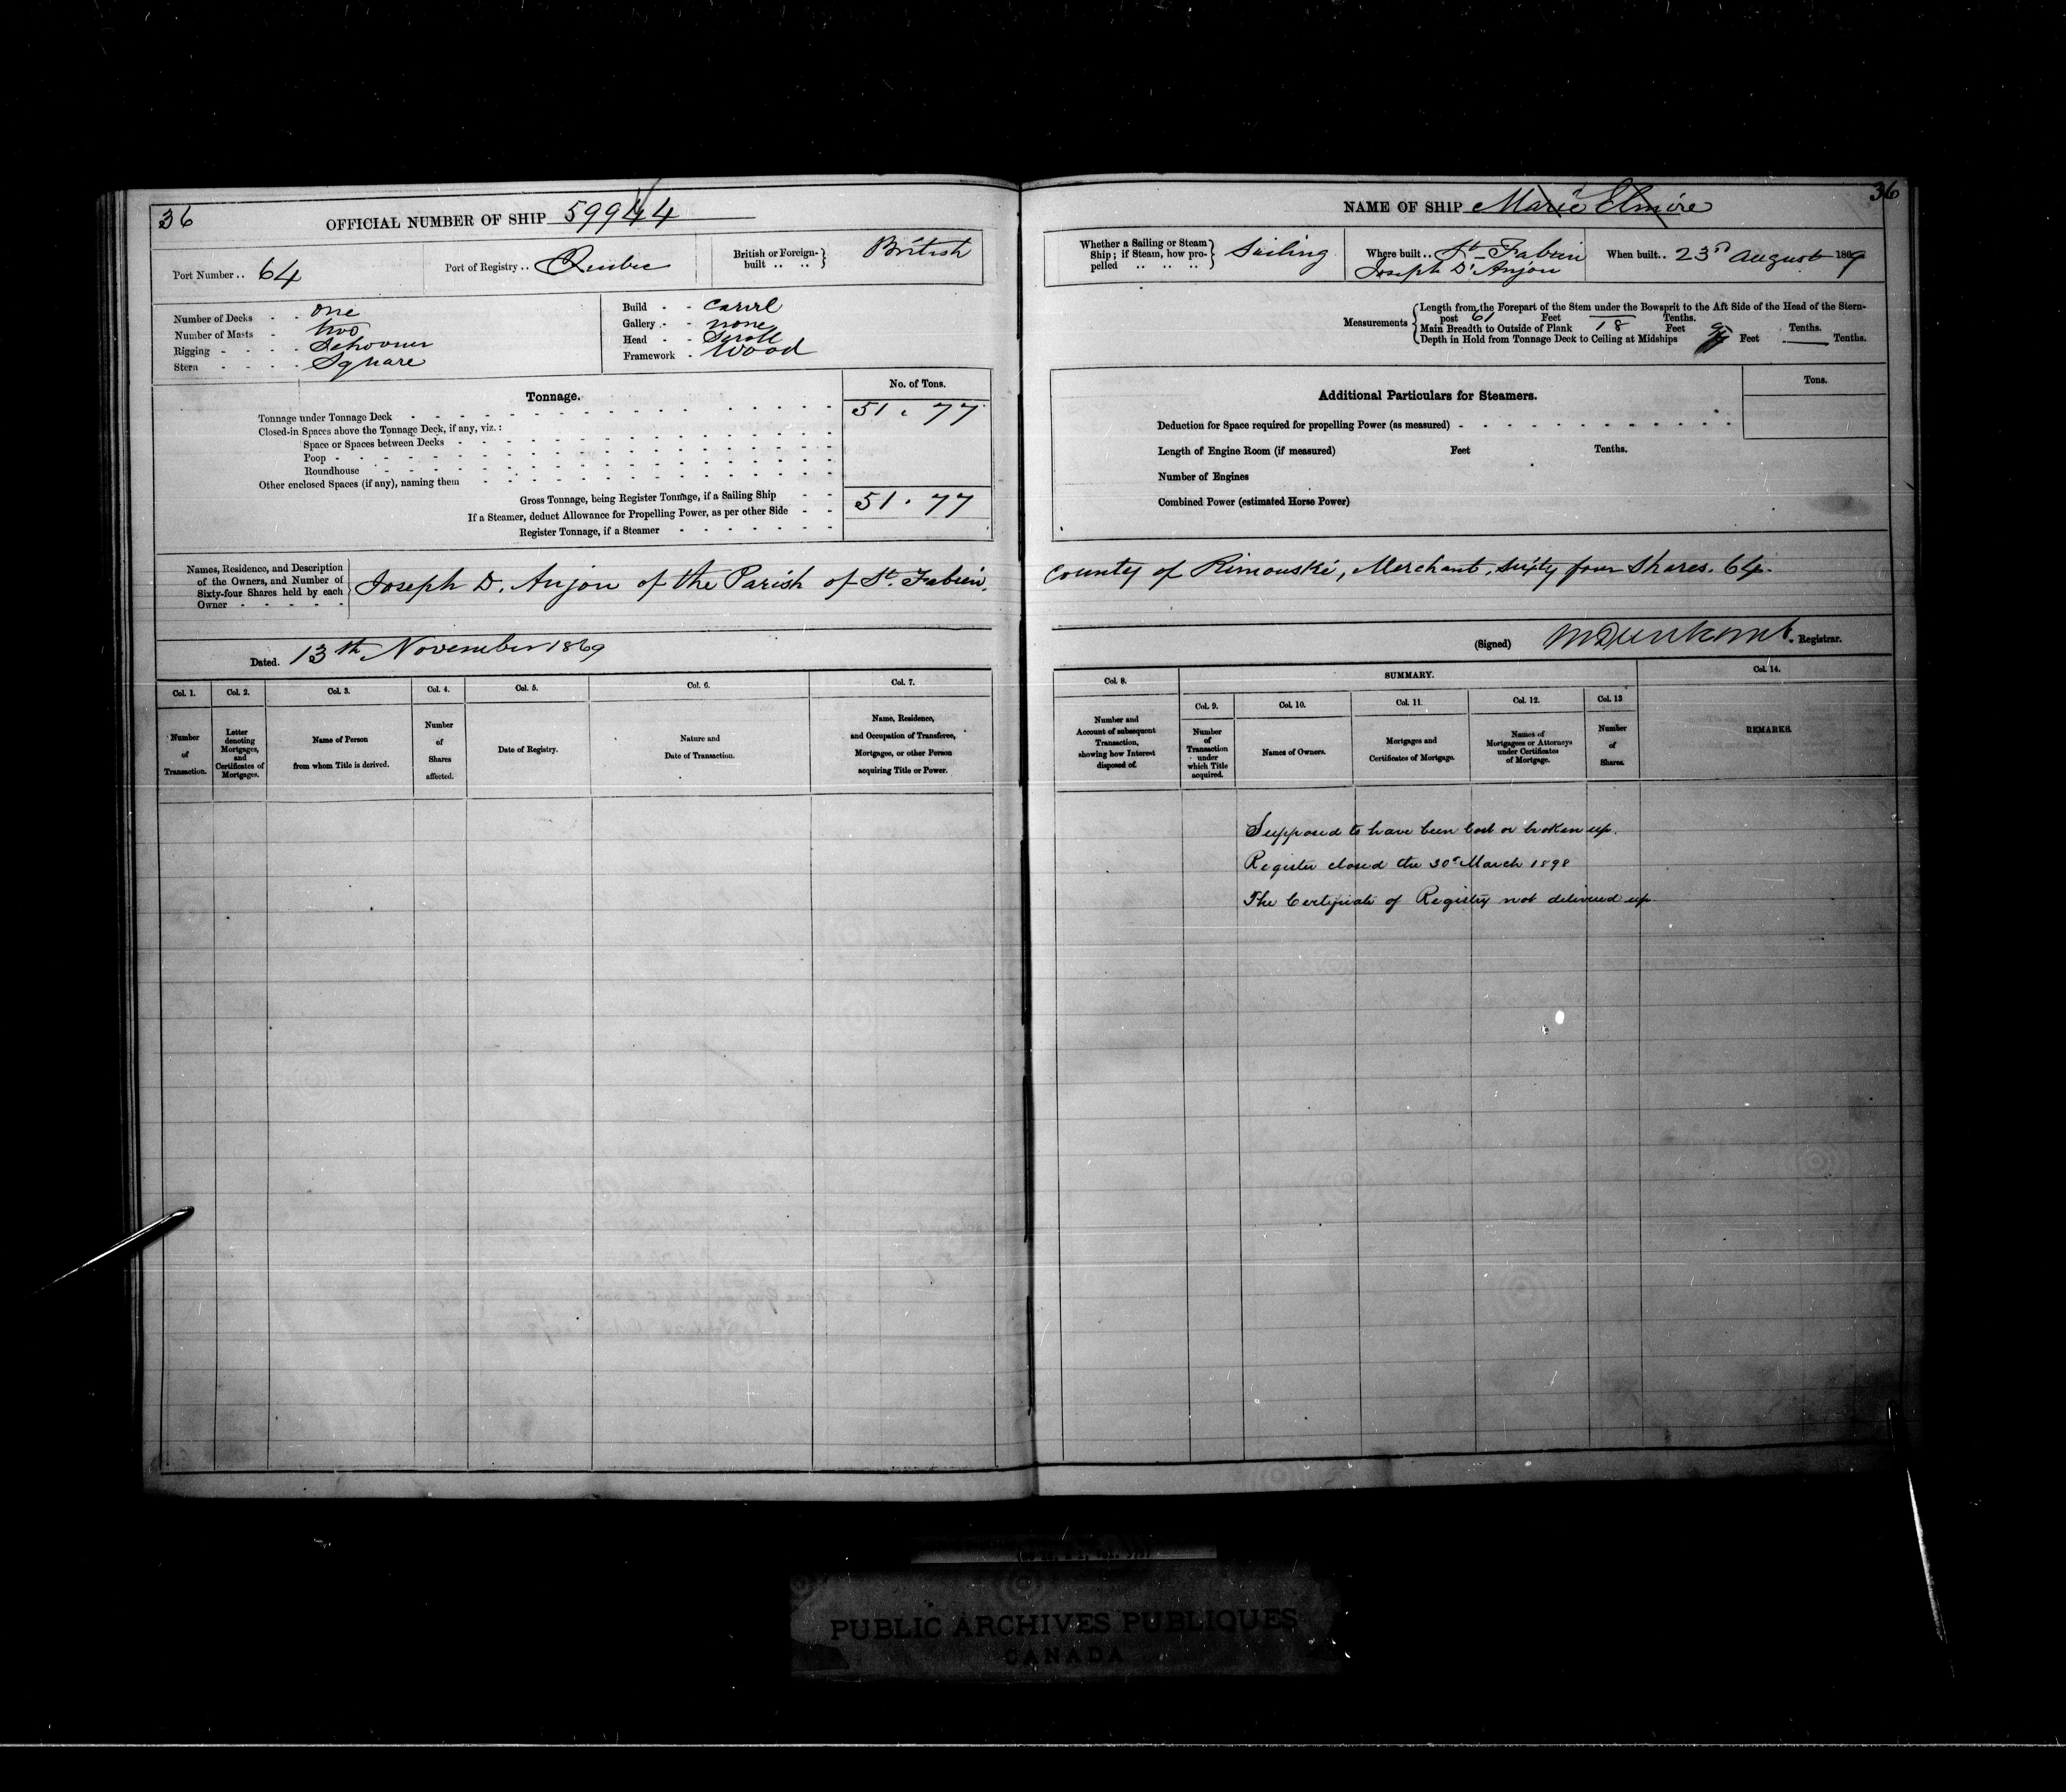 36
OFFICIAL NUMBER OF SHIP 59944
Port Number .. 64
Port of Registry .. Quebec
British or Foreign-built .. .. } British
Number of Decks - - One
Number of Masts - Two
Rigging - - - - Schooner
Stern - - - - Square
Build - - Carvel
Gallery - - none
Head - - Scroll
Framework - Wood
Tonnage.
No. of Tons.
Tonnage under Tonnage Deck 51 . 77
Closed-in Spaces above the Tonnage Deck, if any, viz. :
Space or Spaces between Decks
Poop
Roundhouse
Other enclosed Spaces (if any), naming them
Gross Tonnage, being Register Tonnage, if a Sailing Ship 51 . 77
If a Steamer, deduct Allowance for Propelling Power, as per other Side
Register Tonnage, if a Steamer
Names, Residence, and Description
of the Owners, and Number of
Sixty-four Shares held by each
Owner
Joseph D. Anjou of the Parish of St. Fabien.
Dated. 13th November 1869
Col. 1.
Col. 2.
Col. 3.
Col. 4.
Col. 5.
Col. 6.
Col. 7.
Number
of
Transaction.
Letter
denoting
Mortgages,
and
Certificates of
Mortgages.
Name of Person
from whom Title is derived.
Number
of
Shares
affected.
Date of Registry.
Nature and
Date of Transaction.
Name, Residence,
and Occupation of Transferee,
Mortgagee, or other Person
acquiring Title or Power.
36
NAME OF SHIP Marie Elmire
Whether a Sailing or Steam
Ship; if Steam, how pro-
pelled } Sailing
Where built .. St Fabien
Joseph D'Anjou
When built.. 23d August 1869
Measurements
Length from the Forepart of the Stem under the Bowsprit to the Aft Side of the Head of the Stern-
post 61 Feet — Tenths.
Main Breadth to Outside of Plank 18 Feet Tenths.
Depth in Hold from Tonnage Deck to Ceiling at Midships Feet — Tenths.
Additional Particulars for Steamers.
Tons.
Deduction for Space required for propelling Power (as measured)
Length of Engine Room (if measured) Feet Tenths.
Number of Engines
Combined Power (estimated Horse Power)
County of Rimouski, Merchant, Sixty four Shares. 64.
(Signed) Registrar.
Col. 8.
SUMMARY.
Col. 14.
Col. 9.
Col. 10.
Col. 11.
Col. 12.
Col. 13
Number and
Account of subsequent
Transaction,
showing how Interest
disposed of.
Number
of
Transaction
under
which Title
acquired.
Names of Owners.
Mortgages and
Certificates of Mortgage.
Names of
Mortgagees or Attorneys
under Certificates
of Mortgage.
Number
of
Shares.
REMARKS.
Supposed to have been lost or broken up.
Register closed the 30th March 1898
The Certificate of Registry not delivered up.
PUBLIC ARCHIVES PUBLIQUES
CANADA